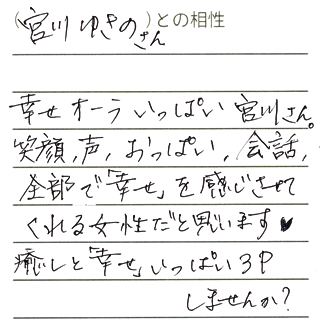 (宮川ゆきのさん)との相性
幸せオーラいっぱい宮川さん。
笑顔,声,おっぱい,会話,
全部で「幸せ」を感じさせて
くれる女性だと思います♥
癒しと「幸せ」いっぱい3P
しませんか?